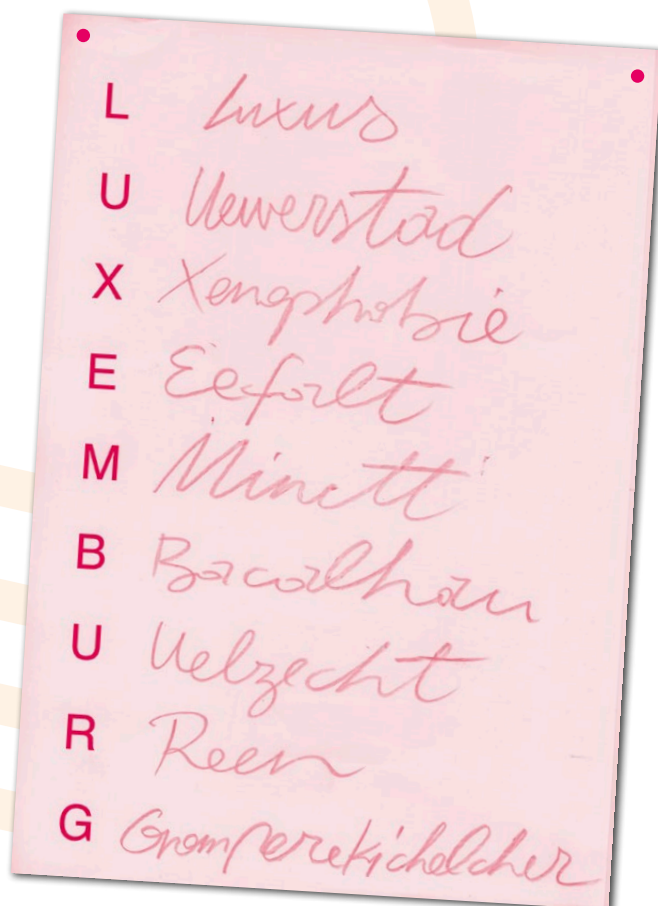 L Luxus
U Uewerstad
X Xenophobie
E Eefalt
M Minett
B Bacalhau
U Uelzecht
R Reen
G Gromperekichelcher